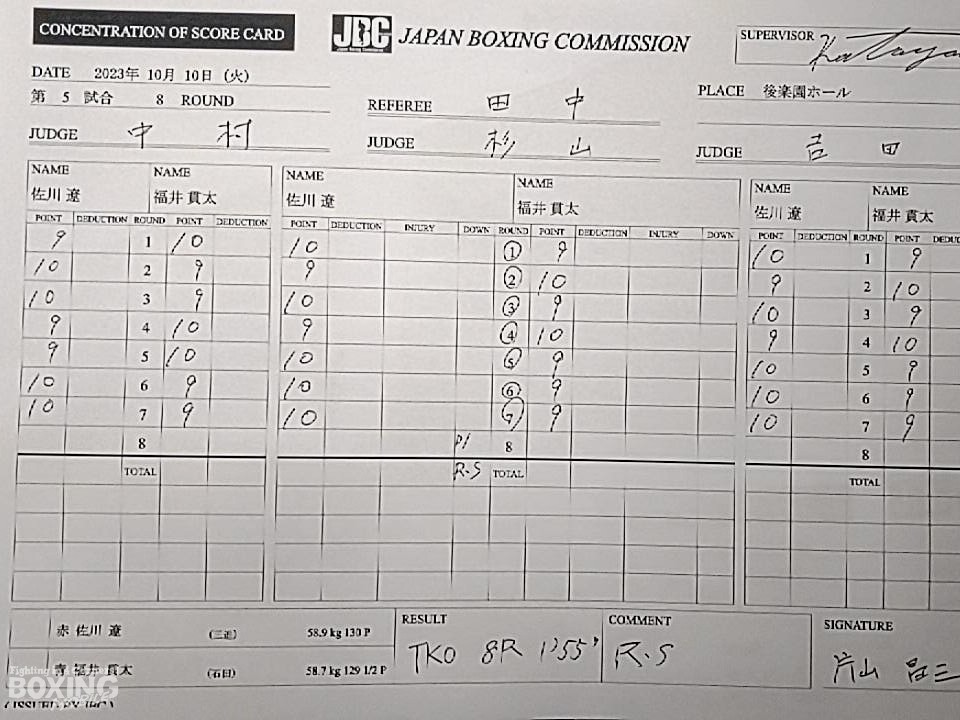 CONCENTRATION OF SCORE CARD
JBC JAPAN BOXING COMMISSION
SUPERVISOR
DATE 2023年 10月 10日 (火)
第 5 試合 8 ROUND
REFEREE 田中
PLACE 後楽園ホール
JUDGE 中村
JUDGE 杉山
JUDGE 吉田
NAME NAME NAME NAME NAME NAME
佐川 遼 福井 貫太 佐川 遼 福井 貫太 佐川 遼 福井 貫太
POINT DEDUCTION ROUND POINT DEDUCTION POINT DEDUCTION INJURY DOWN ROUND POINT DEDUCTION INJURY DOWN POINT DEDUCTION ROUND POINT
9 1 10 10 1 9 10 1 9
10 2 9 9 2 10 9 2 10
10 3 9 10 3 9 10 3 9
9 4 10 9 4 10 9 4 10
9 5 10 10 5 9 10 5 9
10 6 9 10 6 9 10 6 9
10 7 9 10 7 9 10 7 9
8 8 8
TOTAL R.S TOTAL TOTAL
赤 佐川 遼 (三迫) 58.9 kg 130 P
青 福井 貫太 (石田) 58.7 kg 129 1/2 P
RESULT
TKO 8R 1'55"
COMMENT
R.S
SIGNATURE
片山 昌三
BOXING